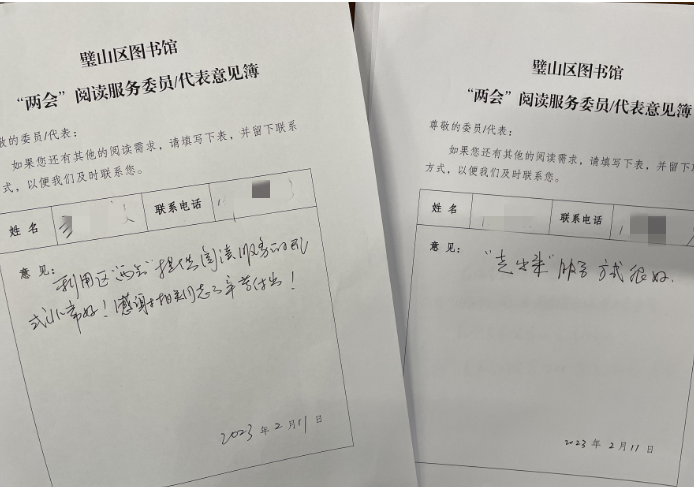 璧山区图书馆
“两会”阅读服务委员/代表意见簿
敬的委员/代表：
如果您还有其他的阅读需求，请填写下表，并留下联系
式，以便我们及时联系您。
姓 名
联系电话
意 见：
利用区“两会”提供阅读服务的形
式非常好！感谢相关同志的辛苦付出！
2023 年 2 月 11 日
璧山区图书馆
“两会”阅读服务委员/代表意见簿
尊敬的委员/代表：
如果您还有其他的阅读需求，请填写下表，并留下
方式，以便我们及时联系您。
姓 名
联系电话
意 见：
“走出来”服务方式很好.
2023 年 2 月 11 日